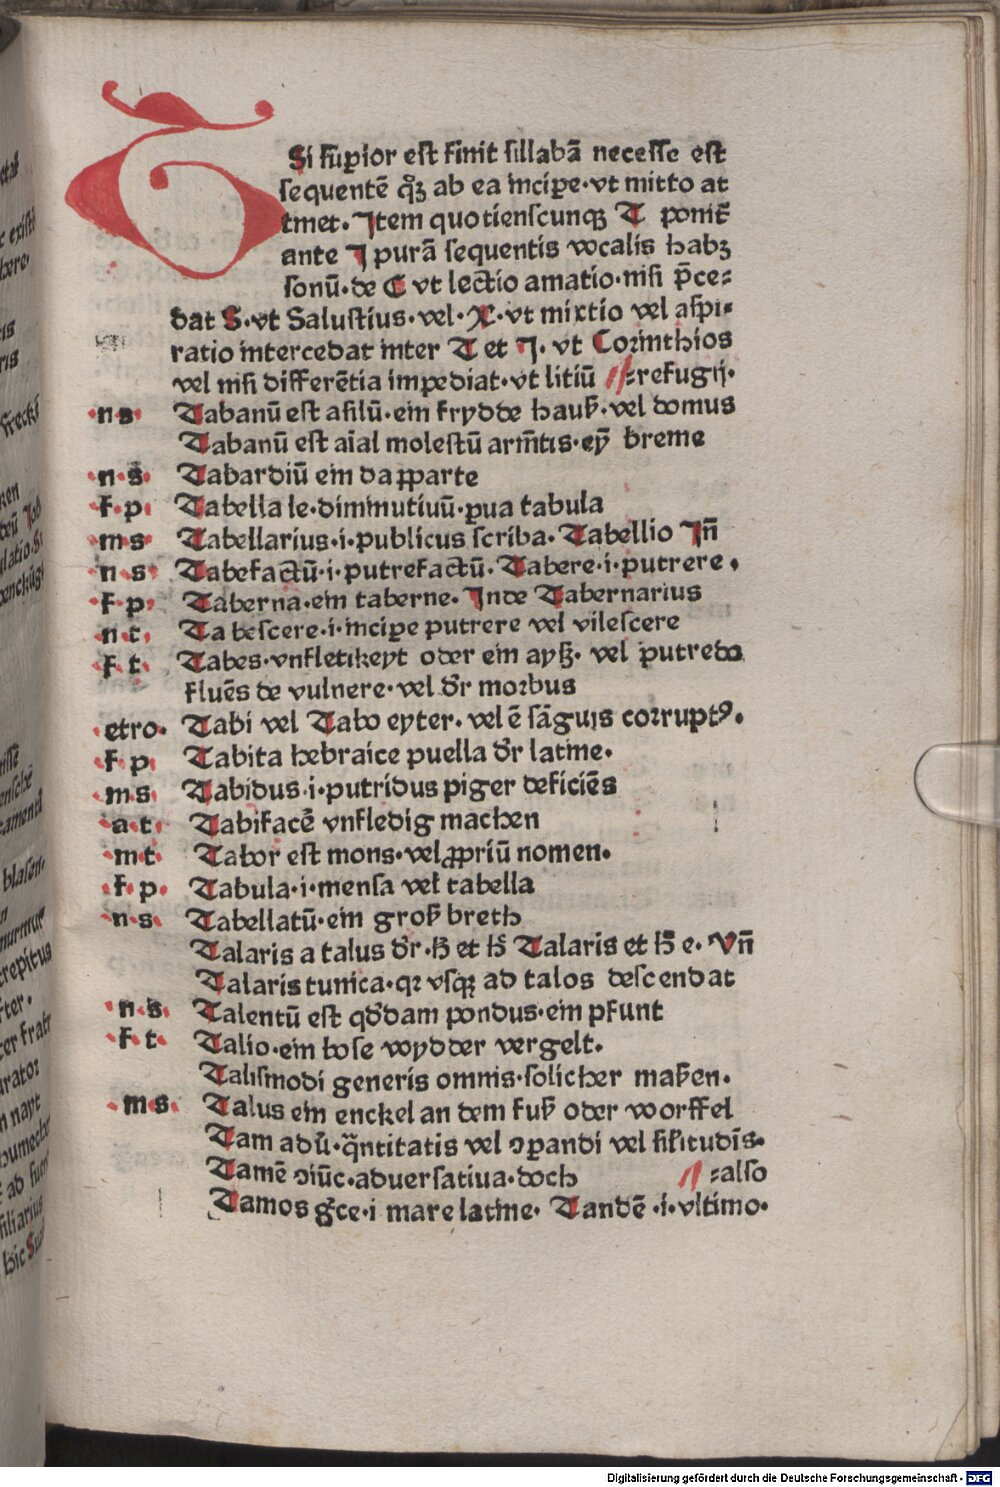 T
Si supior est finit sillabā necesse est
sequentē qꝫ ab ea incipe·vt mitto at
tinet·Item quotienscunqꝫ T ponit̄
ante I purā sequentis vocalis habꝫ
sonū·de C vt lectio amatio·nisi p̄ce⸗
dat S·vt Salustius·vel·X·vt mixtio vel aspi⸗
ratio intercedat inter T et I·vt Corinthios
vel nisi differētia impediat·vt litiū ⸗refugij·
·n s· Tabanū est asilū·ein frydde hauß·vel domus
Tabanū est aīal molestū arm̄tis·ey̅ breme
·n·s· Tabardiū ein dapparte
·f·p· Tabella le·diminutiuū·pua tabula
·m s· Tabellarius·i·publicus scriba·Tabellio In̄
·n s· Tabefactū·i·putrefactū·Tabere·i·putrere·
·f p· Taberna·ein taberne·Inde Tabernarius
·n t· Tabescere·i·incipe putrere vel vilescere
·f t· Tabes·vnfletikeyt oder ein ayß·vel putredo
fluēs de vulnere·vel dr̄ morbus
·etro· Tabi vel Tabo eyter·vel ē sāguis corruptꝰ·
·f p· Tabita hebraice puella dr̄ latine·
·m s· Tabidus·i·putridus piger deficiēs
·a t· Tabifacē vnfledig machen
·m t· Tabor est mons·vel ꝓpriū nomen·
·f p· Tabula·i·mensa vel tabella
·n·s· Tabellatū·ein groß breth
Talaris a talus dr̄·h̄ et h̄ Talaris et h̄ e·Vn̄
Talaris tunica·qꝛ vsqꝫ ad talos descendat
·n·s· Talentū est qd̄dam pondus·ein pfunt
·f t· Talio·ein bose wydder vergelt·
Talismodi generis omnis·solicher maßen·
·m s· Talus ein enckel an dem fuß oder worffel
Tam adū·q̄ntitatis vel ꝯpandi vel silitudīs·
Tamē ꝯiūc·aduersatiua·doch ⸗also
Tamos gc̄e·i mare latine·Tandē·i·vltimo·
Digitalisierung gefördert durch die Deutsche Forschungsgemeinschaft · DFG